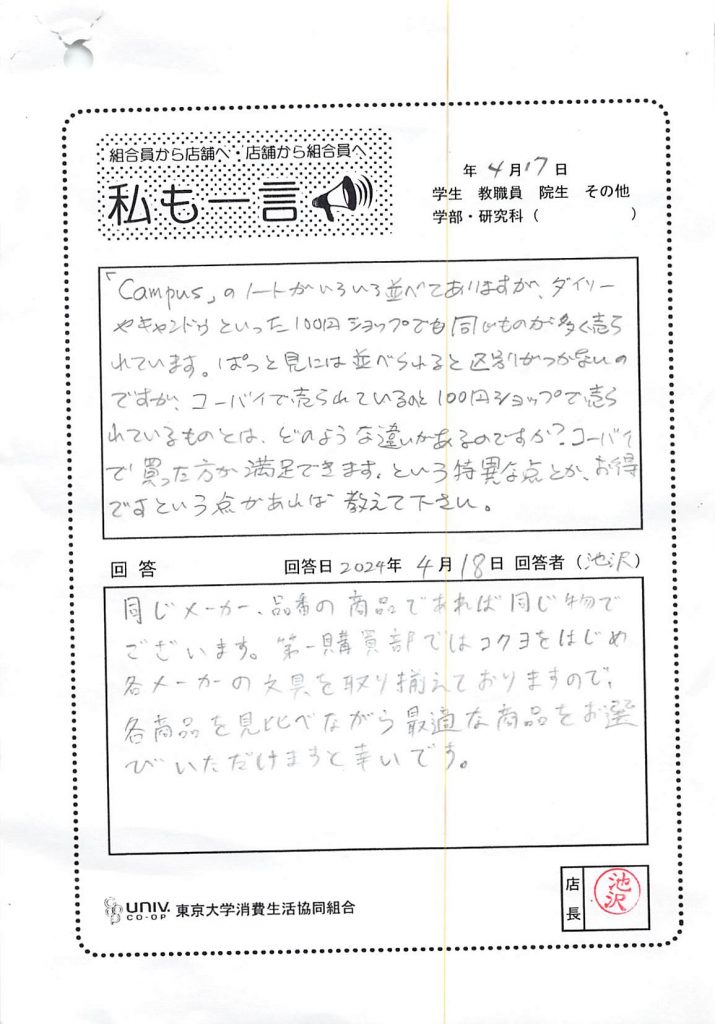 組合員から店舗へ・店舗から組合員へ
私も一言
年 4月17日
学生 教職員 院生 その他
学部・研究科( )
「Campus」のノートがいろいろ並べてありますが、ダイソー
やキャンドゥといった100円ショップでも同じものが多く売ら
れています。ぱっと見には並べられると区別がつかないの
ですが、コーバイで売られているのと100円ショップで売ら
れているものとは、どのような違いがあるのですか?コーバイ
で買った方が満足できます、という特異な点とか、お得
ですという点があれば教えて下さい。
回答 回答日2024年 4月18日 回答者(池沢)
同じメーカー、品番の商品であれば同じ物で
ございます。第一購買部ではコクヨをはじめ
各メーカーの文具を取り揃えておりますので、
各商品を見比べながら最適な商品をお選
びいただけますと幸いです。
UNIV.
CO-OP
東京大学消費生活協同組合
店長
池沢